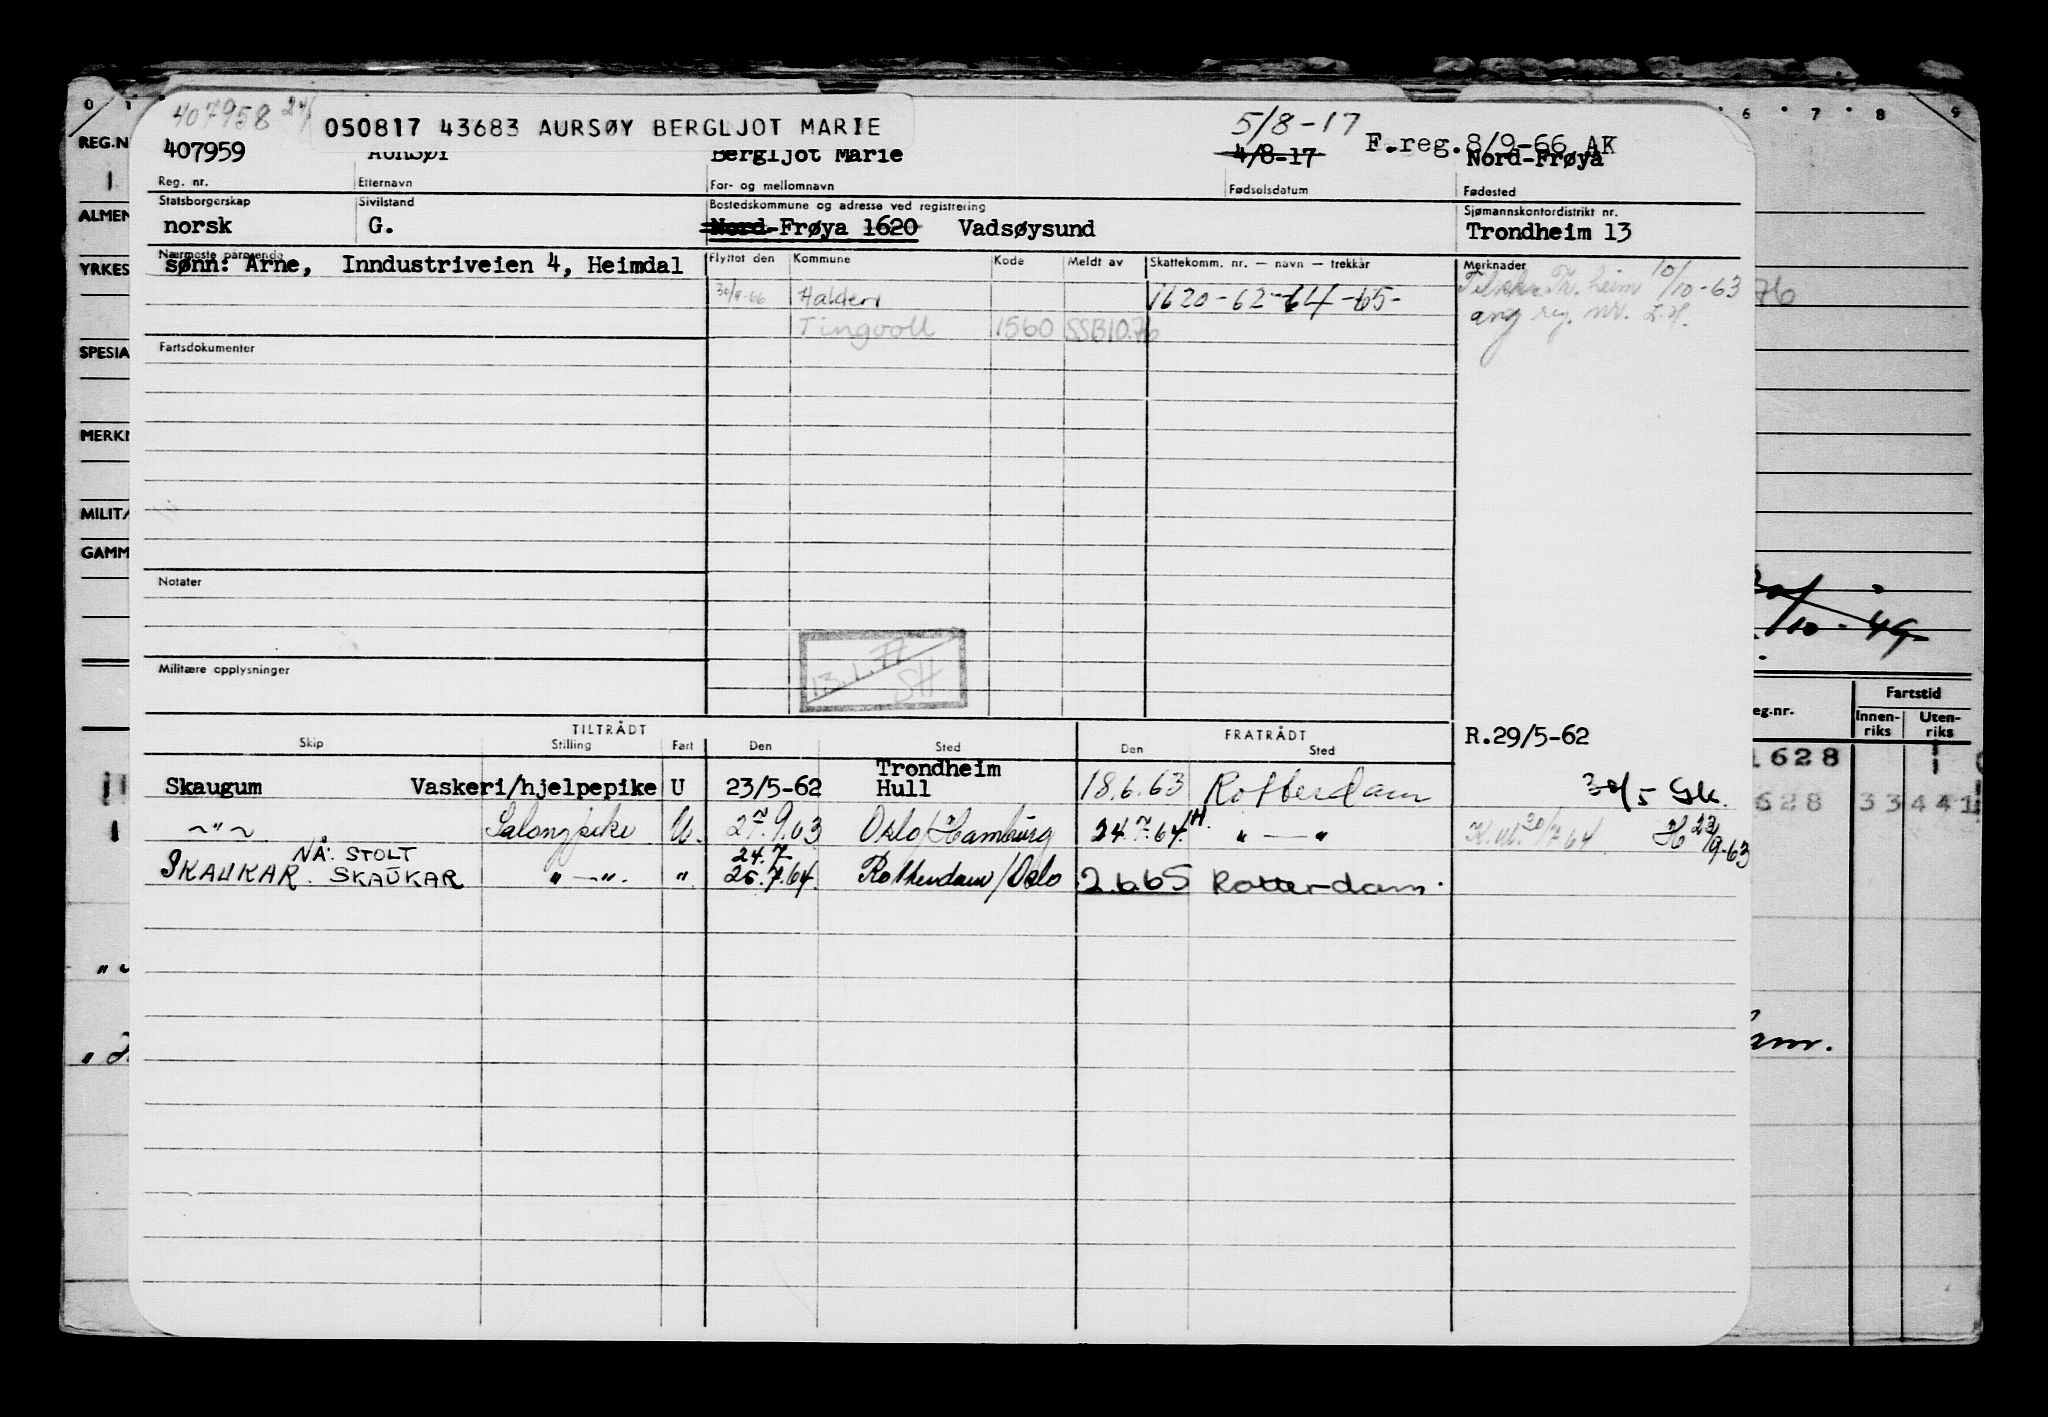 0 1 6 7 8 9
407958 24/
050817 43683 AURSØY BERGLJOT MARIE
5/8-17
F.reg.8/9-66 AK
REG.N
407959 AURSØY Bergljot Marie 4/8-17 Nord-Frøya
Reg. nr. Etternavn For- og mellomnavn Fødselsdatum Fødested
Statsborgerskap Sivilstand Bostedskommune og adresse ved registrering Sjømannskontordistrikt nr.
ALMEN
norsk G. Nord-Frøya 1620 Vadsøysund Trondheim 13
Nærmeste pårørende Flyttet den Kommune Kode Meldt av Skattekomm. nr. — navn — trekkår Merknader
YRKES
sønn: Arne, Inndustriveien 4, Heimdal
30/9-66 Halden 1620-62-64-65- Th.heim 10/10-63 76
Tingvoll 1560 SSB10.76 ang reg. nr.
SPESIA
Fartsdokumenter
MERKN
MILITÆ
GAMM
Notater
/10-49
Militære opplysninger
13.1.77 SH
eg.nr. Fartstid
Innen-riks Uten-riks
TILTRÅDT FRATRÅDT R.29/5-62
Skip Stilling Fart Den Sted Den Sted
1628
Skaugum Vaskeri/hjelpepike U 23/5-62 Trondheim Hull 18.6.63 Rotterdam 30/5 Gk.
628 33441
~"~ Salongpike U. 27.9.63 Oslo/Hamburg 24.7.64 " — " K.ut. 30/7-64 H 23/9-63
SKAUKAR. NÅ: STOLT SKAUKAR " — ". " 24.7 25.7.64. Rotterdam/Oslo 2.6.65 Rotterdam.